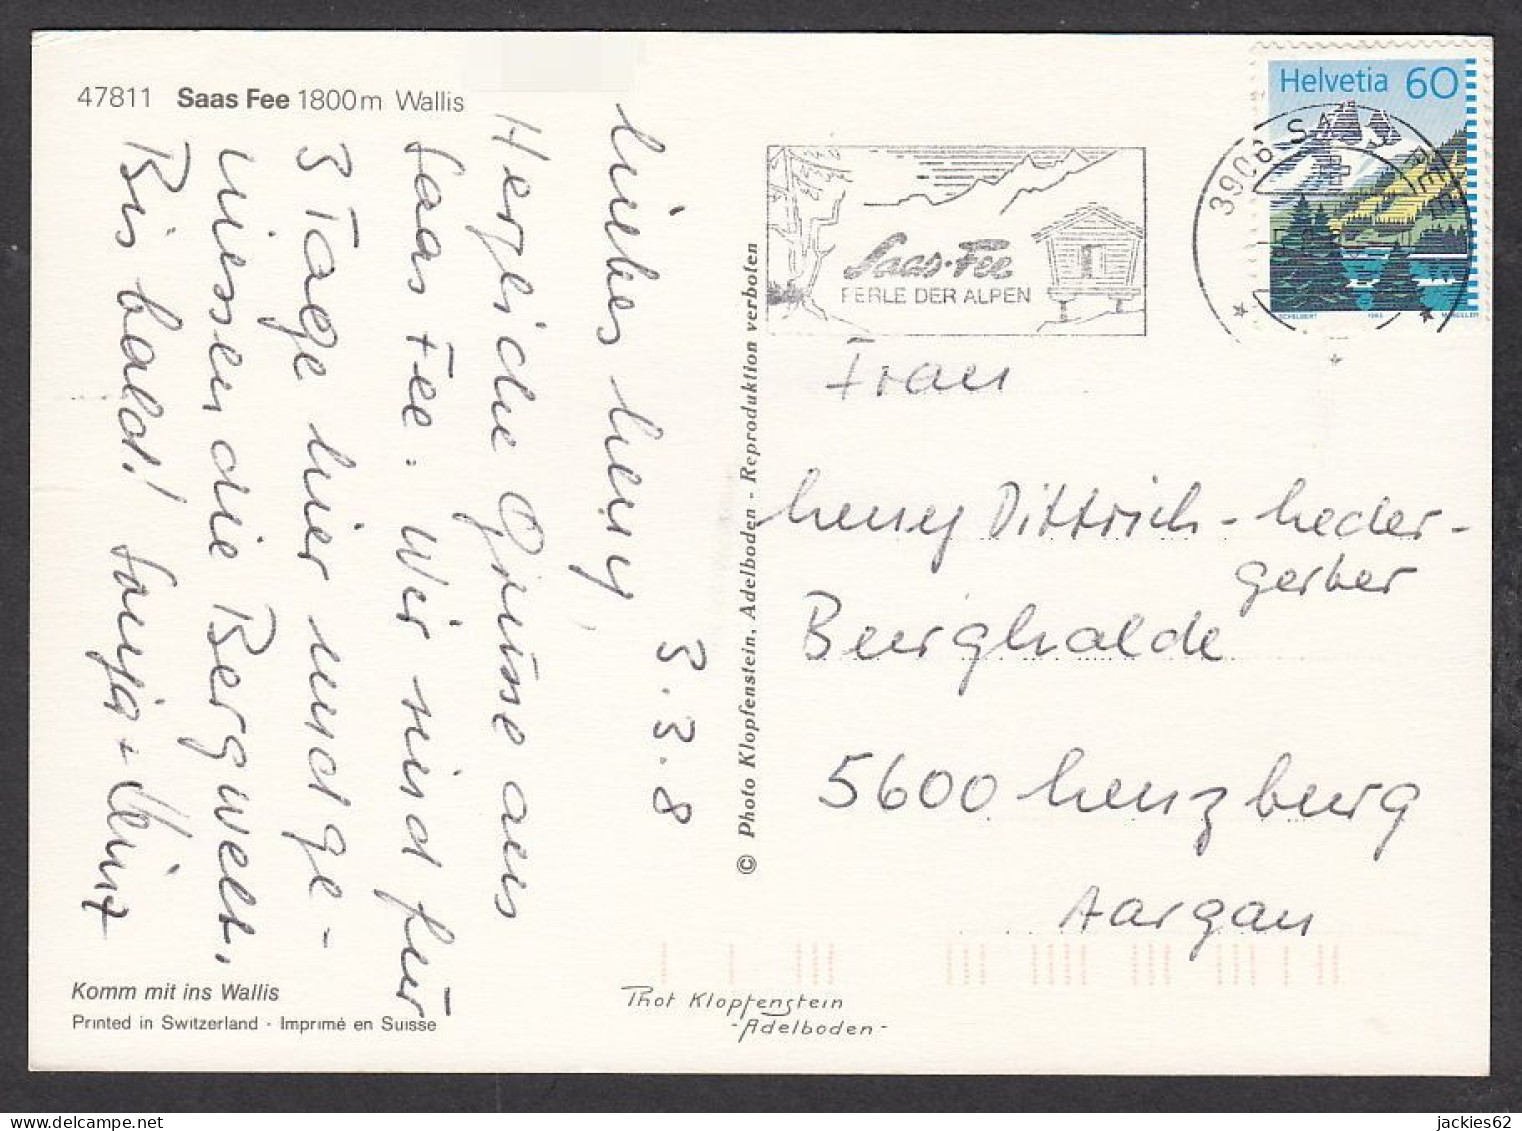 47811 Saas Fee 1800m Wallis
Liebes Leny,
3.3.8
Herzliche Grüsse aus
Saas Fee. Wir sind für
3 Tage hier und ge-
niessen die Bergwelt.
Bis bald! Sonja + Heinz
Komm mit ins Wallis
Printed in Switzerland · Imprimé en Suisse
© Photo Klopfenstein, Adelboden - Reproduktion verboten
Phot Klopfenstein
- Adelboden -
Saas-Fee
PERLE DER ALPEN
3906 SAAS FEE
Helvetia 60
Frau
Leny Dittrich - Leder-
gerber
Burghalde
5600 Lenzburg
Aargau
jackies62